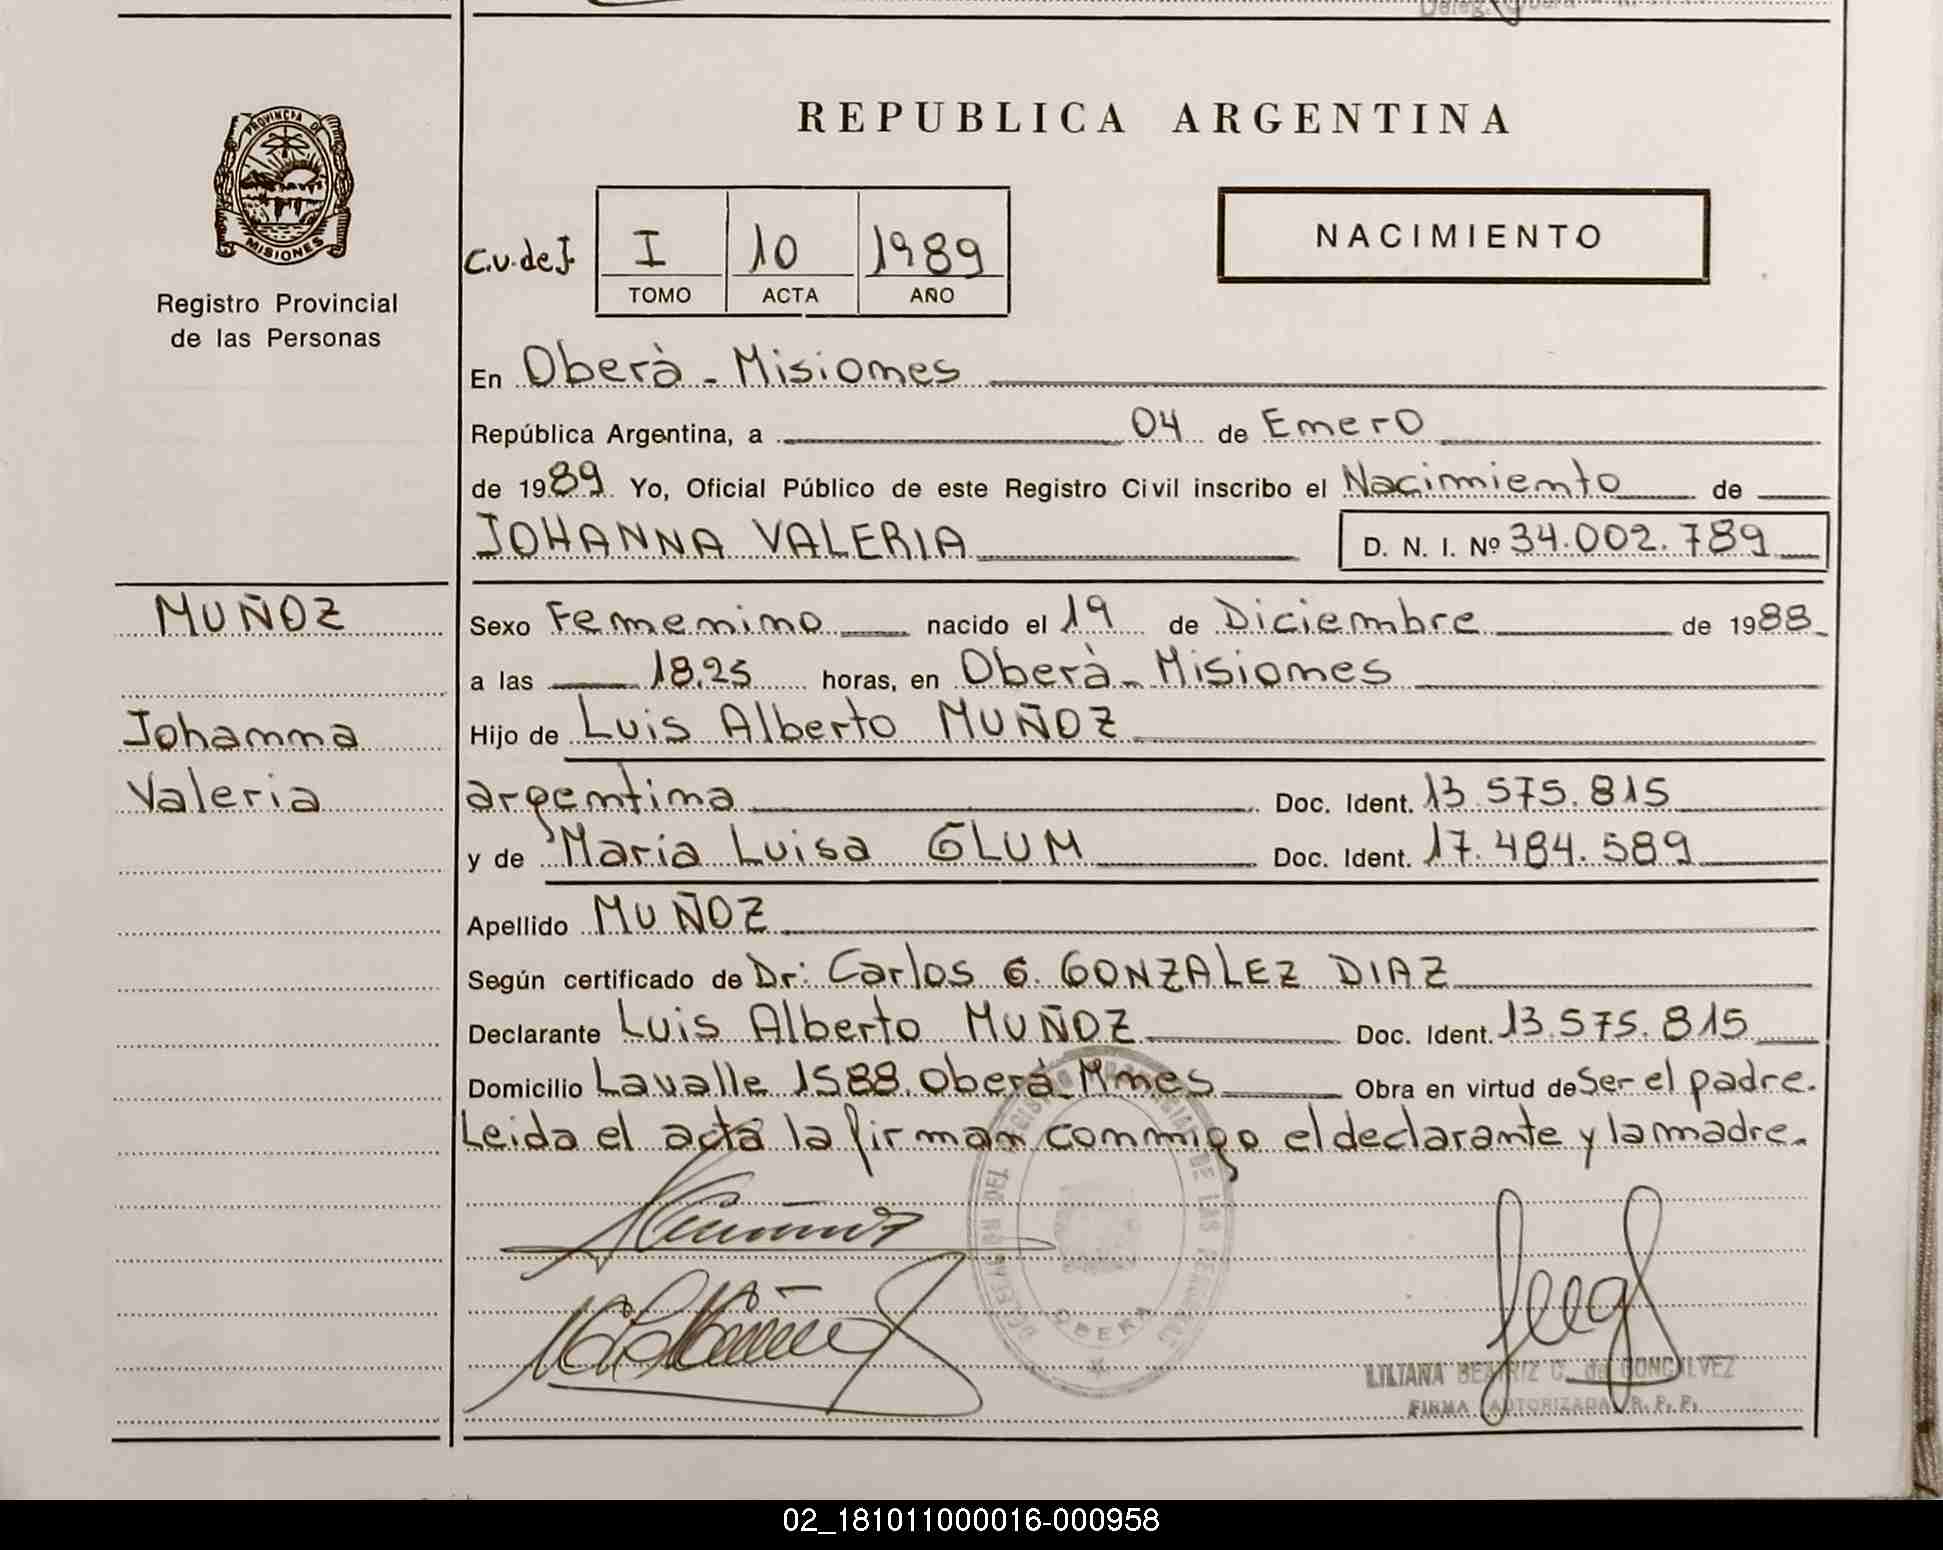 PROVINCIA DE
MISIONES
Registro Provincial
de las Personas
MUÑOZ
Johanna
Valeria
REPUBLICA ARGENTINA
C.V. de J. I 10 1989
TOMO ACTA AÑO
NACIMIENTO
En Oberà - Misiones
República Argentina, a 04 de Enero
de 1989 Yo, Oficial Público de este Registro Civil inscribo el Nacimiento de
JOHANNA VALERIA D. N. I. Nº 34.002.789
Sexo Femenino nacido el 19 de Diciembre de 1988
a las 18.25 horas, en Oberà - Misiones
Hijo de Luis Alberto MUÑOZ
argentina Doc. Ident. 13.575.815
y de Maria Luisa GLUM Doc. Ident. 17.484.589
Apellido MUÑOZ
Según certificado de Dr: Carlos G. GONZALEZ DIAZ
Declarante Luis Alberto MUÑOZ Doc. Ident. 13.575.815
Domicilio Lavalle 1588. Oberà Mnes Obra en virtud de Ser el padre.
Leida el acta la firman conmigo el declarante y la madre.
OBERA
LILIANA BEATRIZ C. de GONCALVEZ
FIRMA AUTORIZADA R. P. P.
02_181011000016-000958